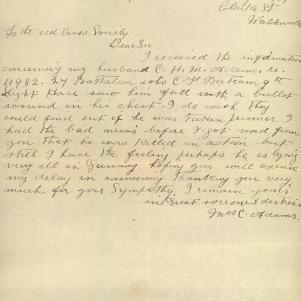 Celeste St
Walkerville
To the red Cross Society
Dear Sir
I received the information
concerning my husband C. H. M. Adams, no.
4982. 27 Battalion who C. F. Bertram, 9th
Light Horse saw him fall with a bullet
wound in his chest. I do wish they
could find out if he was taken prisoner I
had the bad news before I got word from
you that he was killed in action but
still I have the feeling perhaps he is lying
very ill in Germany hoping you will excuse
my delay in answering thanking you very
much for your Sympathy. I remain yours
in great sorrow & distress
Mrs C. Adams.